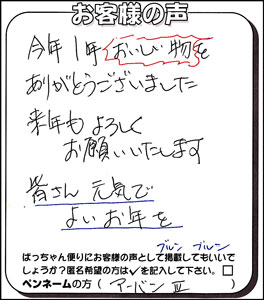 お客様の声
今年1年おいしい物を
ありがとうございました
来年もよろしく
お願いいたします
皆さん元気で
よいお年を
ばっちゃん便りにお客様の声として掲載してもいいで
しょうか?匿名希望の方は✓を記入して下さい。□
ブルン ブルン
ペンネームの方（アーバンⅢ）